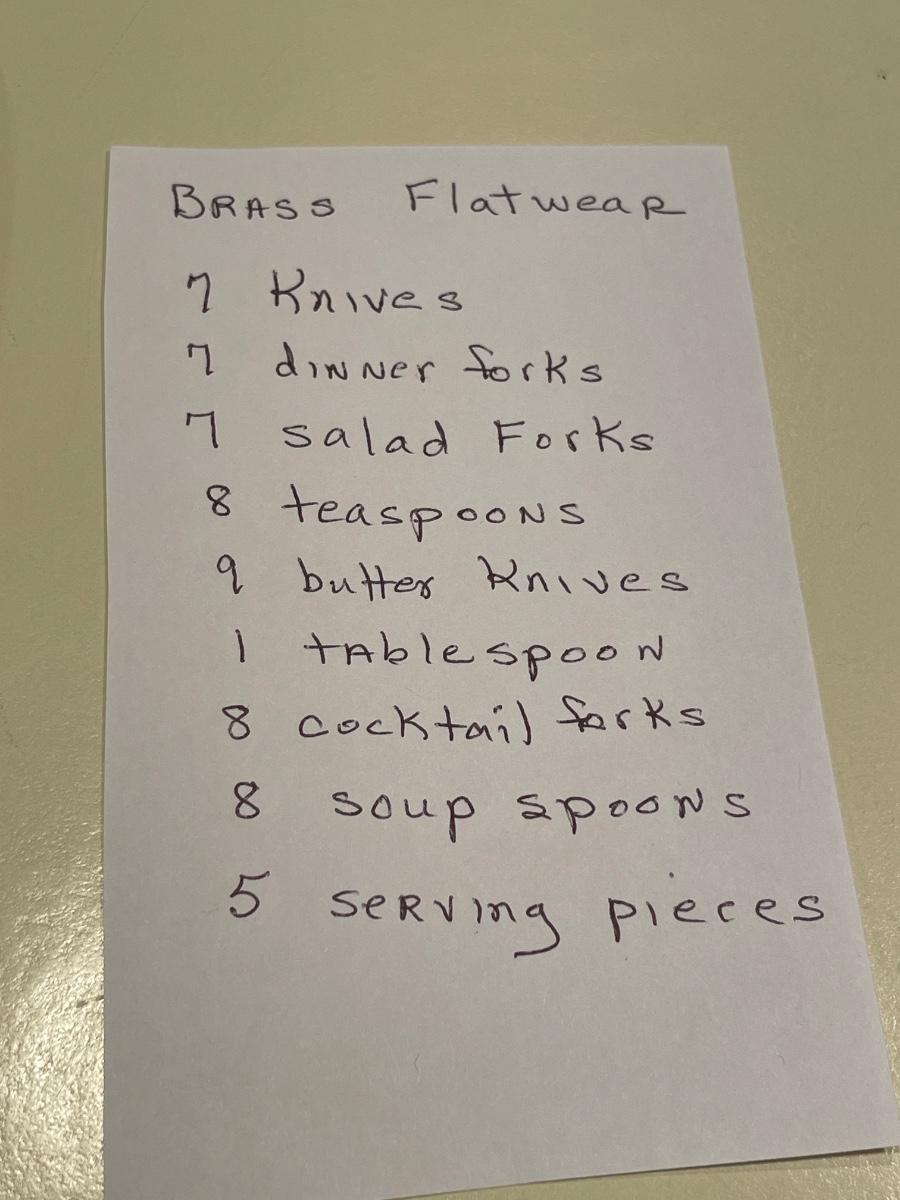 BRASS Flatwear
7 Knives
7 dinner forks
7 salad Forks
8 teaspoons
9 butter Knives
1 tablespoon
8 cocktail forks
8 soup spoons
5 serving pieces